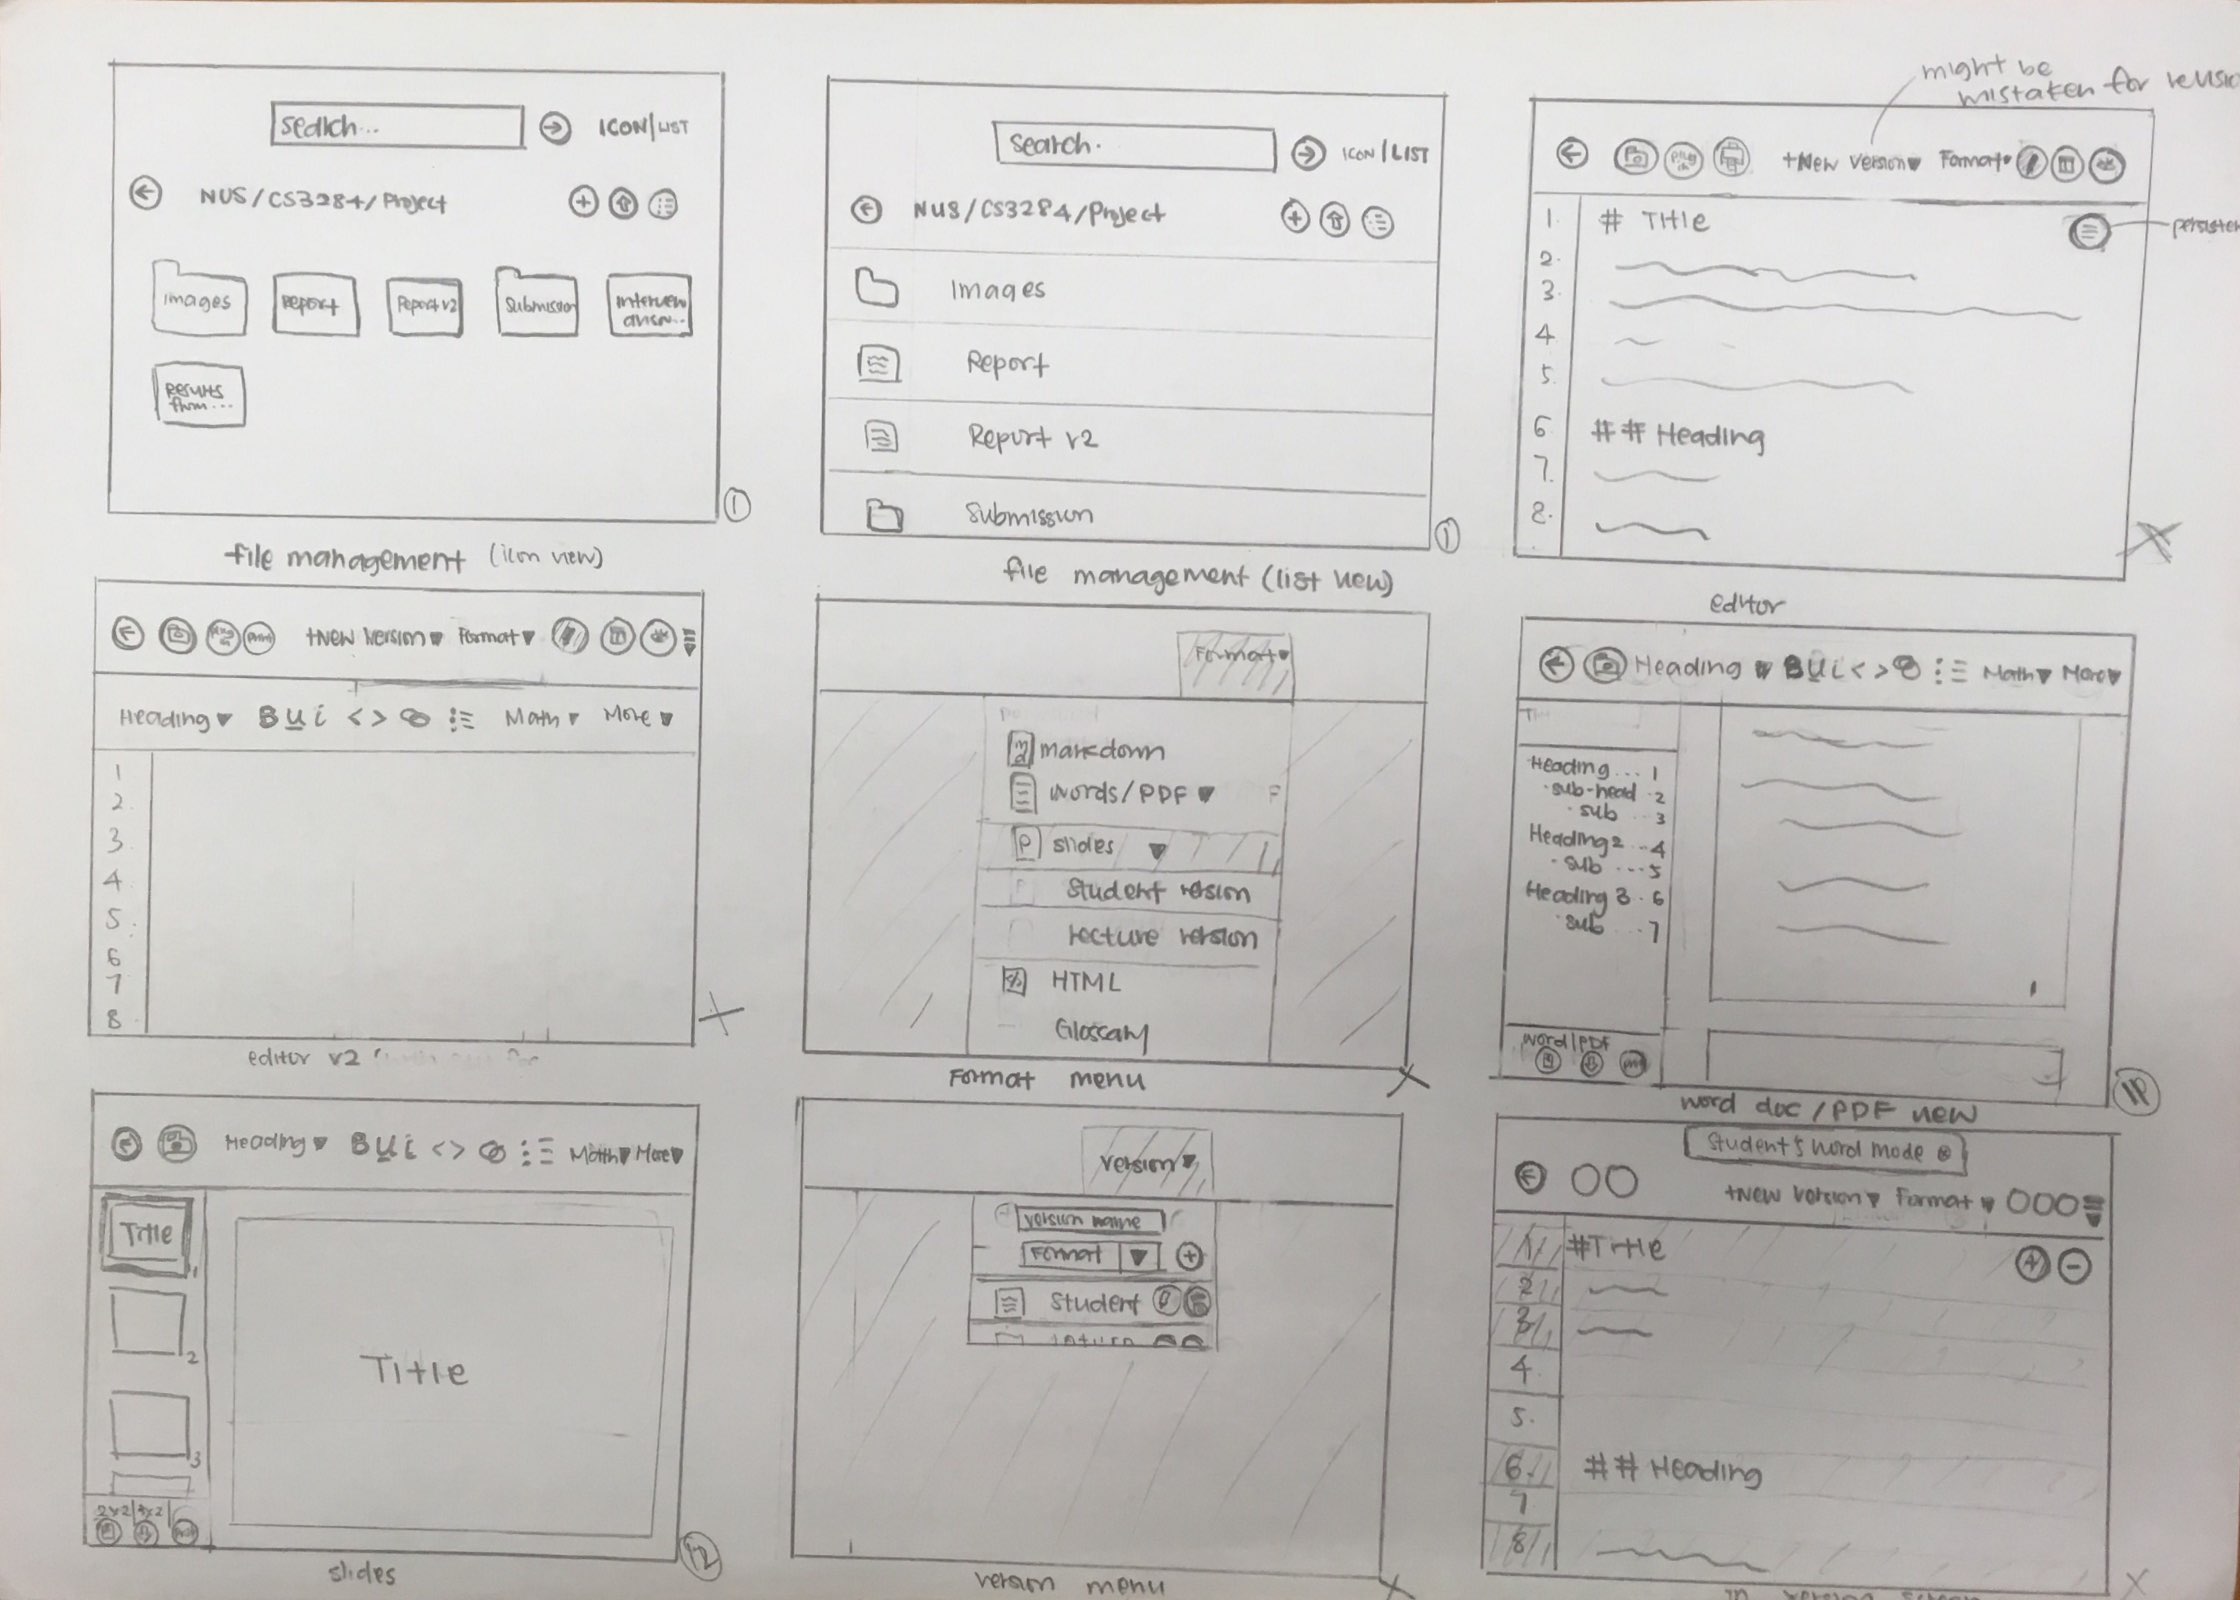 search...
ICON/LIST
NUS/CS3284/Project
Images
Report
Report v2
Submission
Interview
Results
from...
1
file management (icon view)
search.
ICON/LIST
NUS/CS3284/Project
Images
Report
Report v2
Submission
1
file management (list view)
might be
mistaken for
+New Version Format
1. # Title
2.
3.
4
5.
6 ## Heading
7.
8.
editor
+New Version Format
Heading B U i < > Math More
1
2.
3
4
5.
6
7
8
editor v2
Format
markdown
Words/PDF
P slides
Student version
Lecture version
HTML
Glossary
Format menu
Heading B U i < > Math More
Heading... 1
sub-head 2
sub .. 3
Heading 2 ... 4
sub .... 5
Heading 3. 6
sub .... 7
word/PDF
word doc/PDF view
Heading B U i < > Math More
Title
1
2
3
Title
slides
Version
version name
Format
Student
version menu
Student's word mode
+New Version Format
1 #Title
2
3
4
5.
6. ## Heading
7
8
in version screen